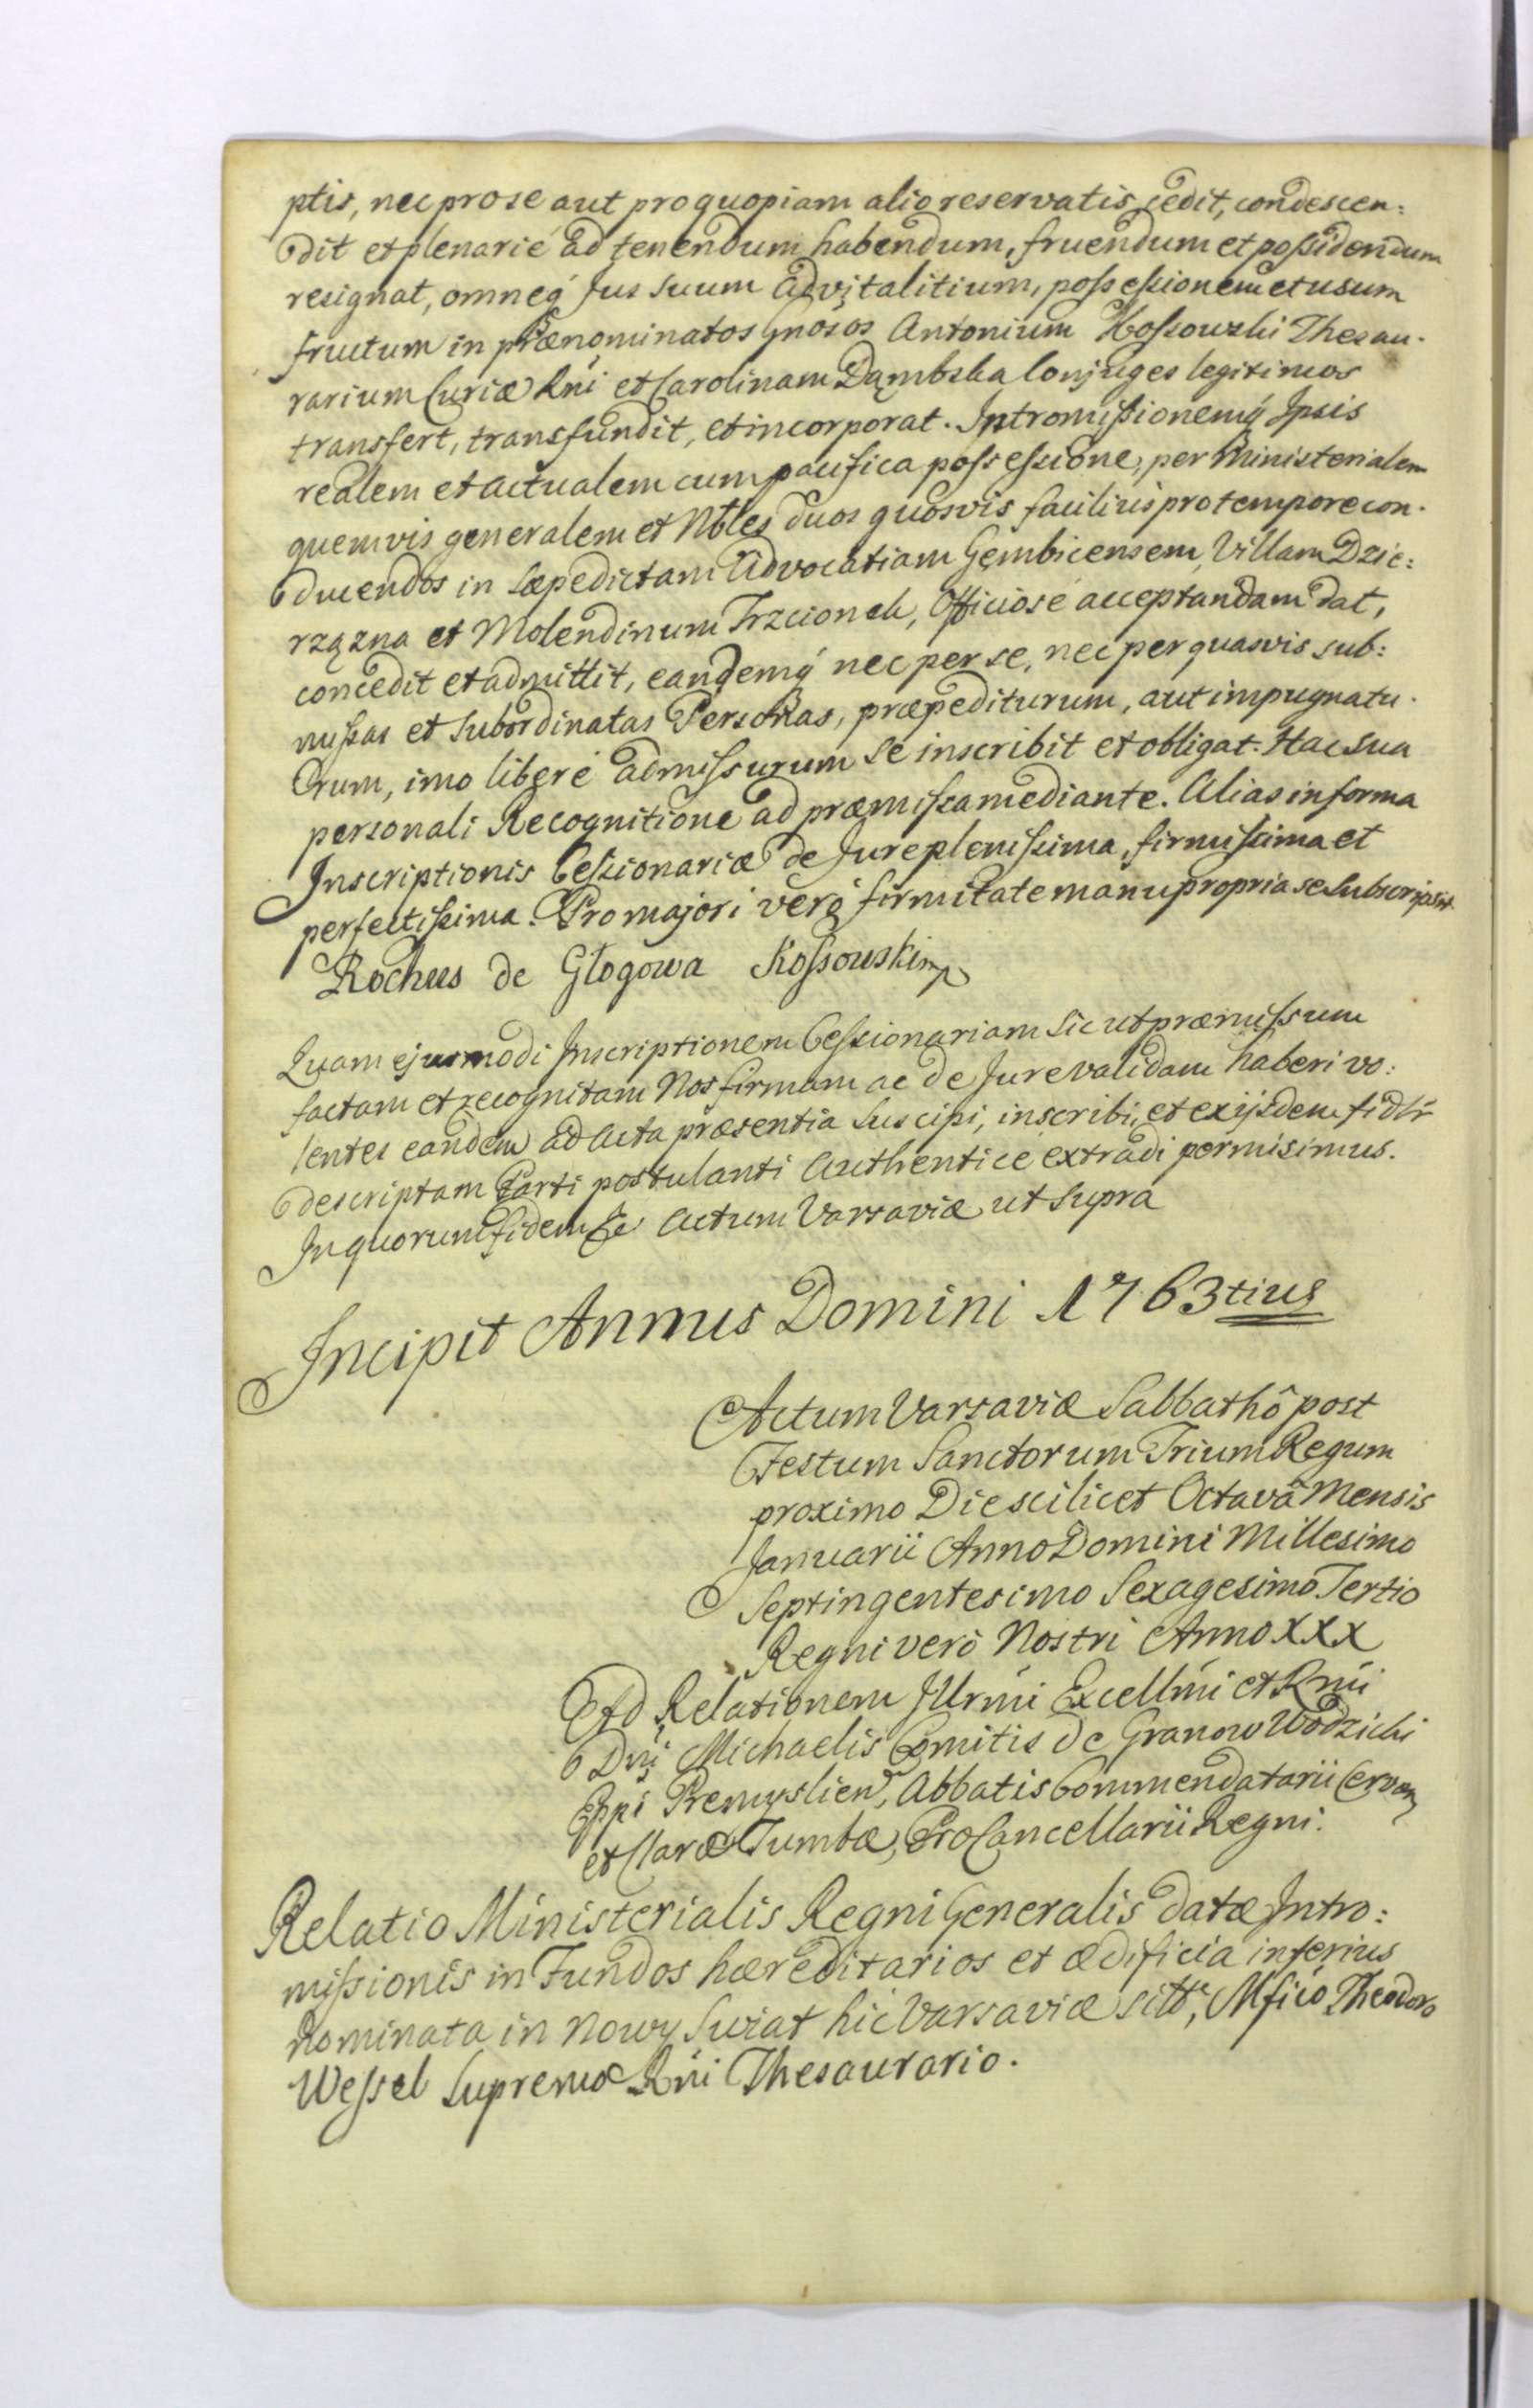 ptis, nec pro se aut pro quopiam alio reservatis cedit, condescen:
dit et plenarié ad tenendum habendum, fruendum et possidendum
resignat, omneq́ Jus suum advitalitium, possessionem et usum
fructum in prænominatos Gnosos Antonium Kossowski Thesau-
rarium Curiæ Rni et Carolinam Dąmbska Conjuges legitimos
transfert, transfundit, et incorporat. Intromissionemq́ Ipsis
realem et actualem cum pacifica possessione, per Ministerialem
quemvis generalem et Nbles duos quosvis facilius pro tempore con-
ducendos in sæpedictam Advocatiam Gembicensem, Villam Dzie:
rzązna et Molendinum Trzcionek, Officiosé acceptandam dat,
concedit et admittit, eandemq́ nec per se, nec per quasvis sub:
missas et subordinatas Personas, præpediturum, aut impugnatu-
rum, imo liberé admissurum se inscribit et obligat. Hac sua
personali Recognitione ad præmissa mediante. Alias in forma
Inscriptionis Cessionariæ de Jure plenissima, firmissima et
perfectissima. Pro majori veró firmitate manu propria se subscripsit
Rochus de Głogowa Kossowski mp
Quam ejusmodi Inscriptionem Cessionariam sic ut præmissum
factam et recognitam Nos firmam ac de Jure validam haberi vo:
lentes eandem ad Acta præsentia suscipi, inscribi, et ex ijsdem fidlr
descriptam Parti postulanti Authenticé extradi permisimus.
In quorum fidem &c Actum Varsaviæ ut supra
Incipit Annus Domini 1763tius
Actum Varsaviæ Sabbathô post
Festum Sanctorum Trium Regum
proximo Die scilicet Octavâ Mensis
Januarii Anno Domini Millesimo
Septingentesimo Sexagesimo Tertio
Regni verò Nostri Anno XXX
Ad Relationem Illrmi Excellmi et Rmi
Dni Michaelis Comitis de Granow Wodzicki
Eppi Premyslien, Abbatis Commendatarii Cerven
et Claræ Tumbæ, ProCancellarii Regni.
Relatio Ministerialis Regni Generalis datæ Intro:
missionis in Fundos hæreditarios et ædificia inferius
nominata in Nowy Swiat hic Varsaviæ sitt, Mfico Theodoro
Wessel Supremo Rni Thesaurario.